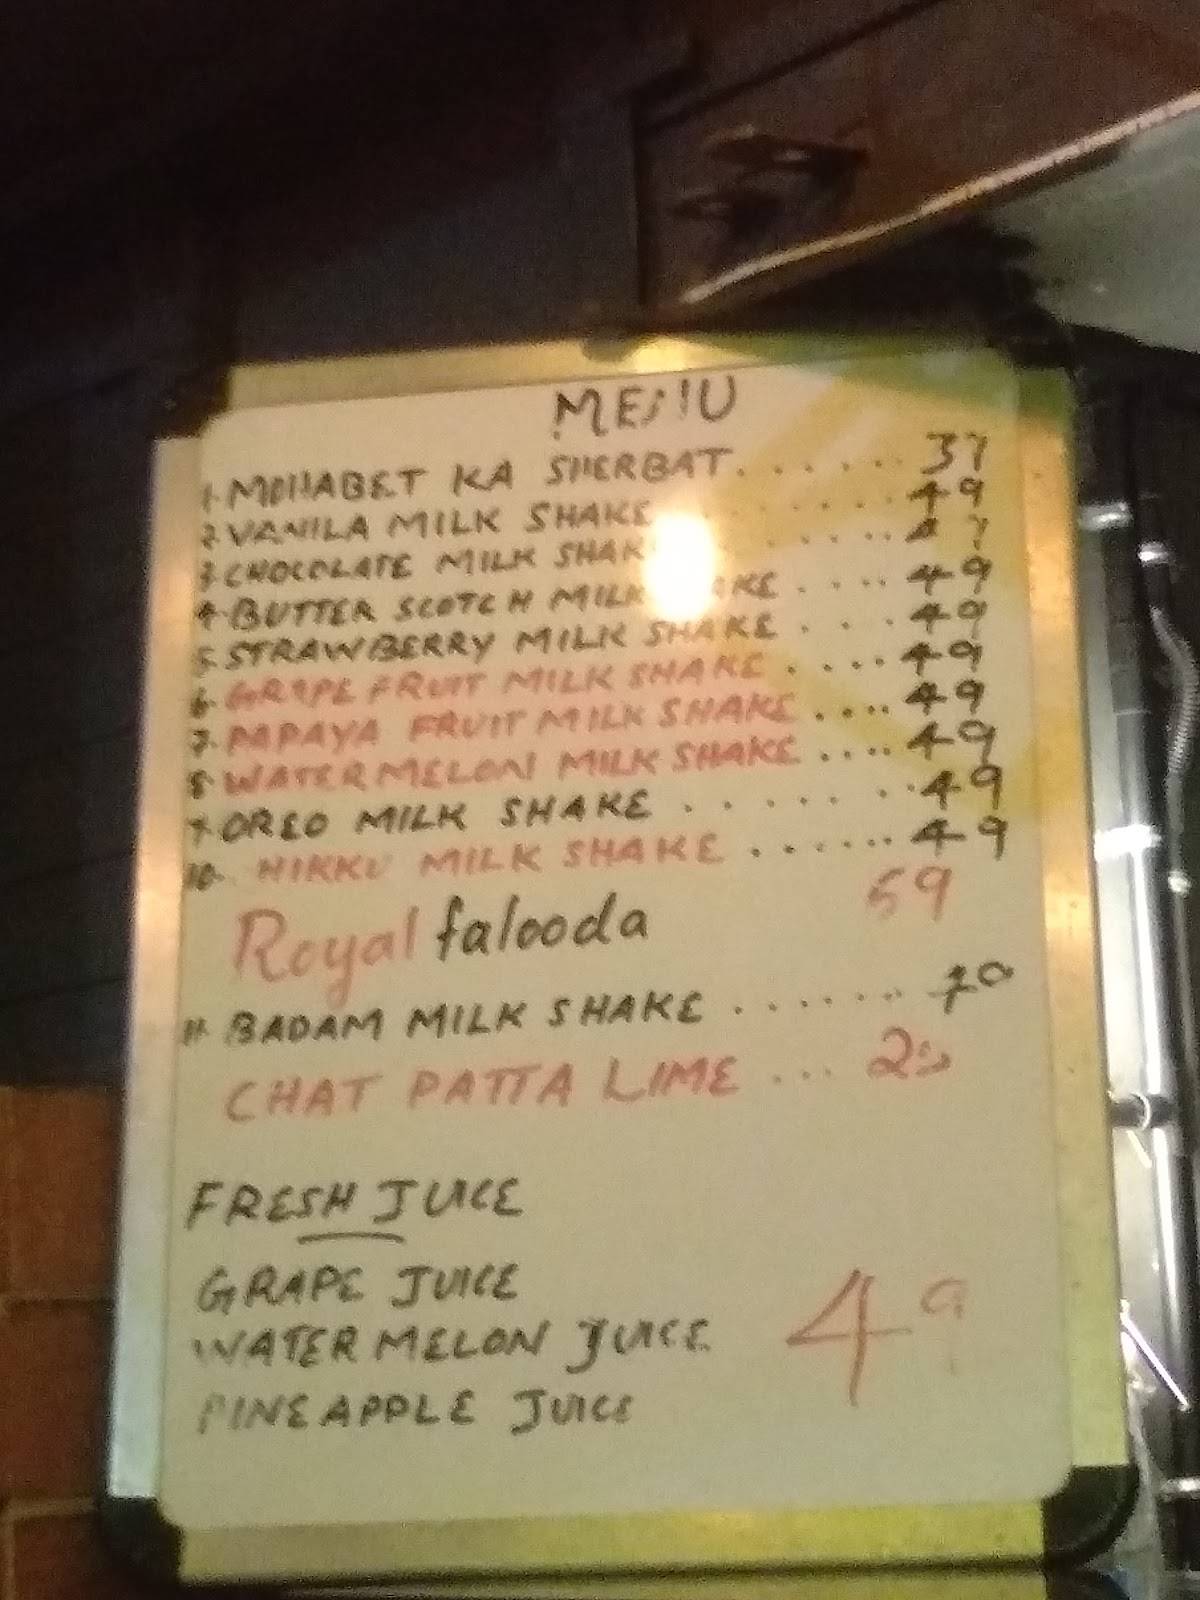 MENU
1. MOHABET KA SHERBAT....... 37
2. VANILA MILK SHAKE ....... 49
3. CHOCOLATE MILK SHAK ......
4. BUTTER SCOTCH MILK SHAKE .... 49
5. STRAWBERRY MILK SHAKE .... 49
6. GRAPE FRUIT MILK SHAKE ..... 49
7. PAPAYA FRUIT MILK SHAKE .... 49
8. WATERMELON MILK SHAKE ..... 49
9. OREO MILK SHAKE ....... 49
10. NIKKU MILK SHAKE ...... 49
Royal falooda 59
11. BADAM MILK SHAKE ....... 70
CHAT PATTA LIME ...
FRESH JUICE
GRAPE JUICE
WATERMELON JUICE 49
PINEAPPLE JUICE